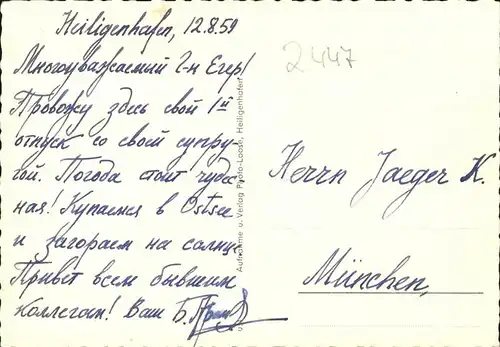 Heiligenhafen, 12.8.59
2447
Многоуважаемий г-н Егер!
Провожу здесь свой 1й
отпуск со своей супру-
гой. Погода стоит чудес
ная! Купаемся в Ostsee
и загораем на солнце
Привет всем бывшим
коллегам! Ваш Б.
Aufnahme u. Verlag Photo-Loose, Heiligenhafen
Herrn Jaeger K.
München,